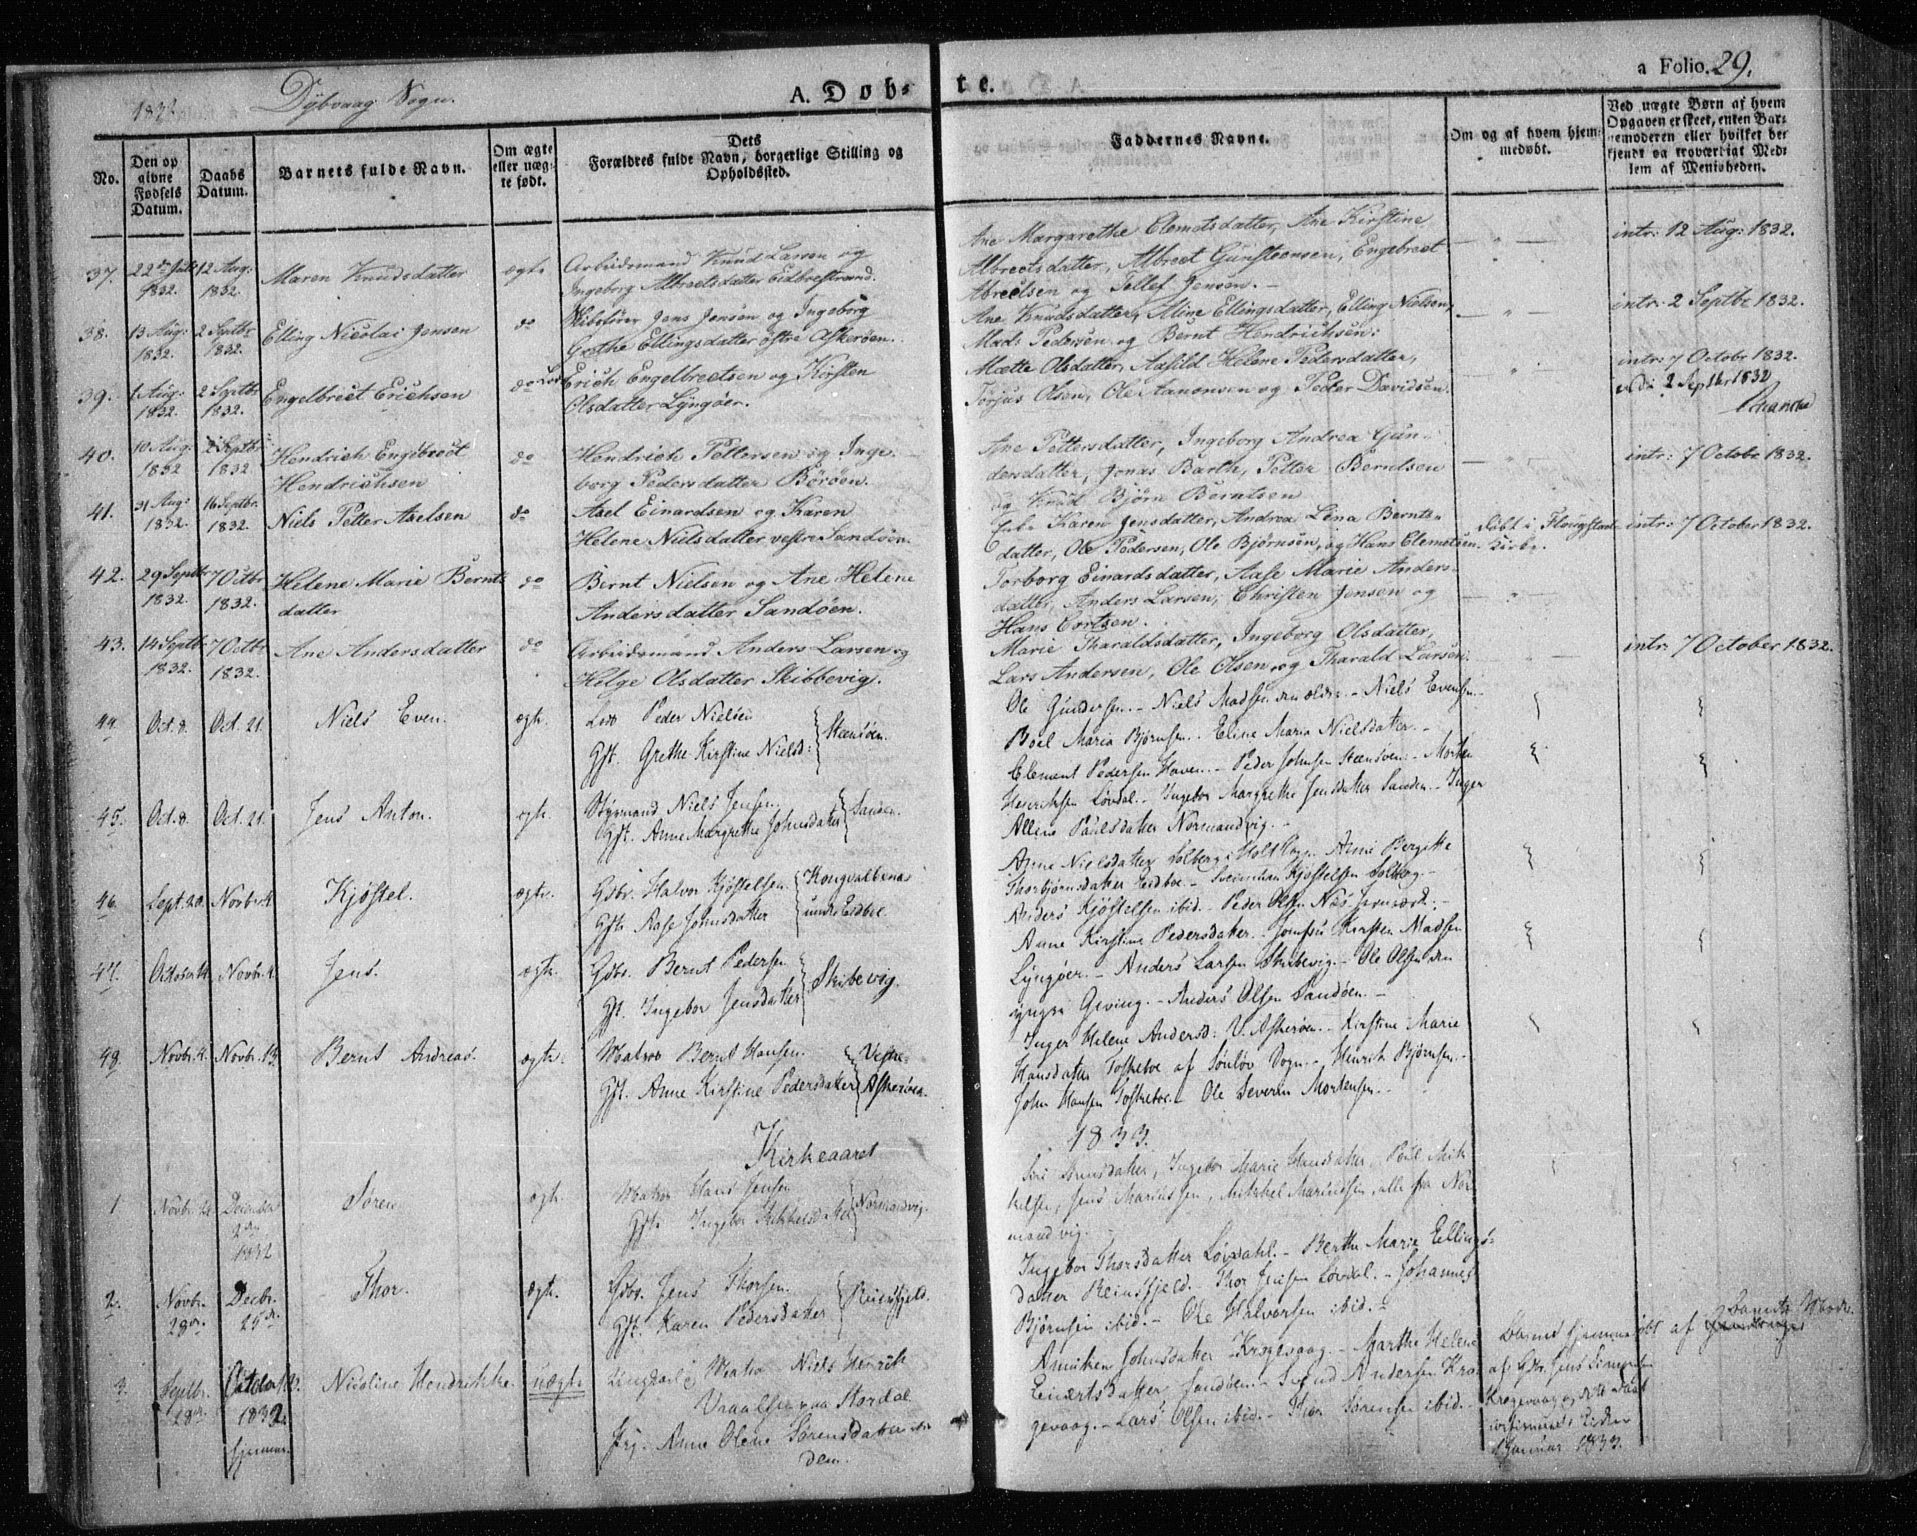 1832 Dybvaag Sogn. A. Døb-
te. a Folio. 29.
No. Den opgivne Fødsels Datum. Daabs Datum. Barnets fulde Navn. Om ægte eller uægte født. Dets Forældres fulde Navn, borgerlige Stilling og Opholdssted.
Faddernes Navne. Om og af hvem hjemmedøbt. Ved uægte Børn af hvem Opgaven er skeet, enten Barnemoderen eller hvilket bekjendt og troværdigt Medlem af Menigheden.
37. 22de Juli 1832. 12 Aug: 1832. Maren Knudsdatter ægte Arbeidsmand Knud Larsen og
Ingeborg Albrectsdatter Eidbrestrand.
Ane Margarethe Clemetsdatter, Ane Kirstine
Albrectsdatter, Albrect Gunsteensen, Engebrect
Abreclsen og Tellef Jensen. -
intr: 12 Aug: 1832.
38. 13 Aug: 1832. 2 Septbr 1832. Elling Nicolai Jensen do Skibsfører Jens Jensen og Ingeborg
Grethe Ellingsdatter østre Askerøen.
Ane Knudsdatter, Aline Ellingsdatter, Elling Nielsen,
Mads Pedersen og Bernt Hendrichsen:
intr: 2 Septbr 1832.
39. 1 Aug: 1832. 2 Septbr 1832. Engelbrect Erichsen do Lods Erich Engelbrectsen og Kirsten
Olsdatter Lyngøer.
Mætte Olsdatter, Aasild Helene Pedersdatter,
Torjus Olsen, Ole Aanonsen og Peder Davidsen.
intr: 7 Octobr 1832.
2 Septbr 1832
40. 10 Aug: 1832 2 Septbr 1832 Hendrich Engebrect
Hendrichsen do Hendrich Pettersen og Inge-
borg Pedersdatter Børøen.
Ane Pettersdatter, Ingeborg Andrea Gun-
dersdatter, Jonas Barth, Petter Berntsen
og Knud Bjørn Berntsen
intr: 7 Octobr 1832.
41. 31 Aug: 1832 16 Septbr. 1832. Niels Petter Axelsen do Axel Einardsen og Karen
Helene Nielsdatter vestre Sandøen.
Karen Jensdatter, Andrea Lena Bernts-
datter, Ole Pedersen, Ole Bjørnsen, og Hans Clemetsen.
døbt i Flougstad Kirke.
intr: 7 October 1832.
42. 29 Septbr 1832. 7 Octbr 1832. Helene Marie Bernts-
datter do Bernt Nielsen og Ane Helene
Andersdatter Sandøen.
Torborg Einardsdatter, Aase Marie Anders-
datter, Anders Larsen, Christen Jensen og
Hans Cortsen.
43. 14 Septbr 1832. 7 Octbr. 1832. Ane Andersdatter do Arbeidsmand Anders Larsen og
Helge Olsdatter Skibbevig.
Marie Tharaldsdatter, Ingeborg Olsdatter,
Lars Andersen, Ole Olsen og Tharald Larsen.
intr: 7 October 1832.
44. Oct. 8. Oct. 21. Niels Even. ægte. Lods Peder Nielsen
Gft. Grethe Kirstine Nielsd: Stensøen.
Ole Gundersen. - Niels Madsen den ældre. - Niels Evensen.
Boel Maria Bjørnsen. Eline Maria Nielsdatter. -
45. Oct. 8. Oct. 21. Jens Anton. ægte. Styrmand Niels Jensen.
Gft. Anne Margrethe Johnsdatter Sandøen.
Clement Pedersen Haven. - Peder Johnsen Stensøen. - Morten
Henrichsen Løvdal. - Ingebor Margrethe Jensdatter Sandøen. - Inger
Allene Paulsdatter Normandvig. -
46. Sept. 20. Novbr. 4. Kjøstel. ægte. Gdbr. Halvor Kjøstelsen
Gft. Aase Johnsdatter Kongvaldbenas under Eidboe.
Anne Nielsdatter Solberg i Holt Sogn. Anne Bergitte
Thorbjørnsdatter Eidboe. - Kjøstelsen Solberg. -
Anders Kjøstelsen ibid. - Peder Olsen Næs Jernværk. -
47. October 14 Novbr. 4. Jens. ægte. Gdbr. Bernt Pedersen
Gft. Ingebor Jensdatter Skibevig.
Anne Kirstine Pedersdatter. - Jomfru Kirsten Madsen
Lyngøer. - Anders Larsen Skibevig. - Ole Olsen den
yngre Geving. - Anders Olsen Sandøen. -
48. Novbr. 4. Novbr. 13. Bernt Andreas. ægte. Matros Bernt Hansen.
Gft. Anne Kirstine Pedersdatter Vestre Askerøen.
Inger Helene Andersd: V. Askerøen. - Kirstine Marie
Hansdatter Toskeboe af Sønløv Sogn. - Henrik Bjørnsen. -
John Hansen Toskeboe. - Ole Severin Mortensen. -
Kirkeaaret
1833.
1 Novbr. December 2den 1832 Søren ægte. Matros Hans Jensen
Gft. Ingebor Mikkelsdatter Normandvig.
Siri Jensdatter, Ingebor Marie Hansdatter, Poul Mik-
kelsen, Jens Mariussen, Mikkel Mariussen, alle fra Nor-
mandvig.
2. Novbr. 28de Decbr. 25de. Thor. ægte. Gdbr. Jens Thorsen.
Gft. Karen Pedersdatter Reinsfjeld.
Ingebor Thorsdatter Løvdahl. - Berthe Marie Ellings-
datter Reinsfjeld. - Thor Jensen Løvdal. - Johannes
Bjørnsen ibid. - Ole Halvorsen ibid. -
3. Septbr. 28de October 1832. hjemme. Nicoline Hendrikke. uægte Ungkarl, Matros Niels Henrik
paa Stordal
Pig. Anne Olene Sørensdatter
Anniken Johnsdatter Krogevaag. - Marthe Helene
Einertsdatter Sandøen. - Svend Andersen Kro-
gevaag. - Lars Olsen ibid. - Thor Sørensen ibid. -
Barnet hjemmedøbt af
af Gbr. Jens Simonsen
Krogevaag og
Januar 1833.
Barnets Moder.